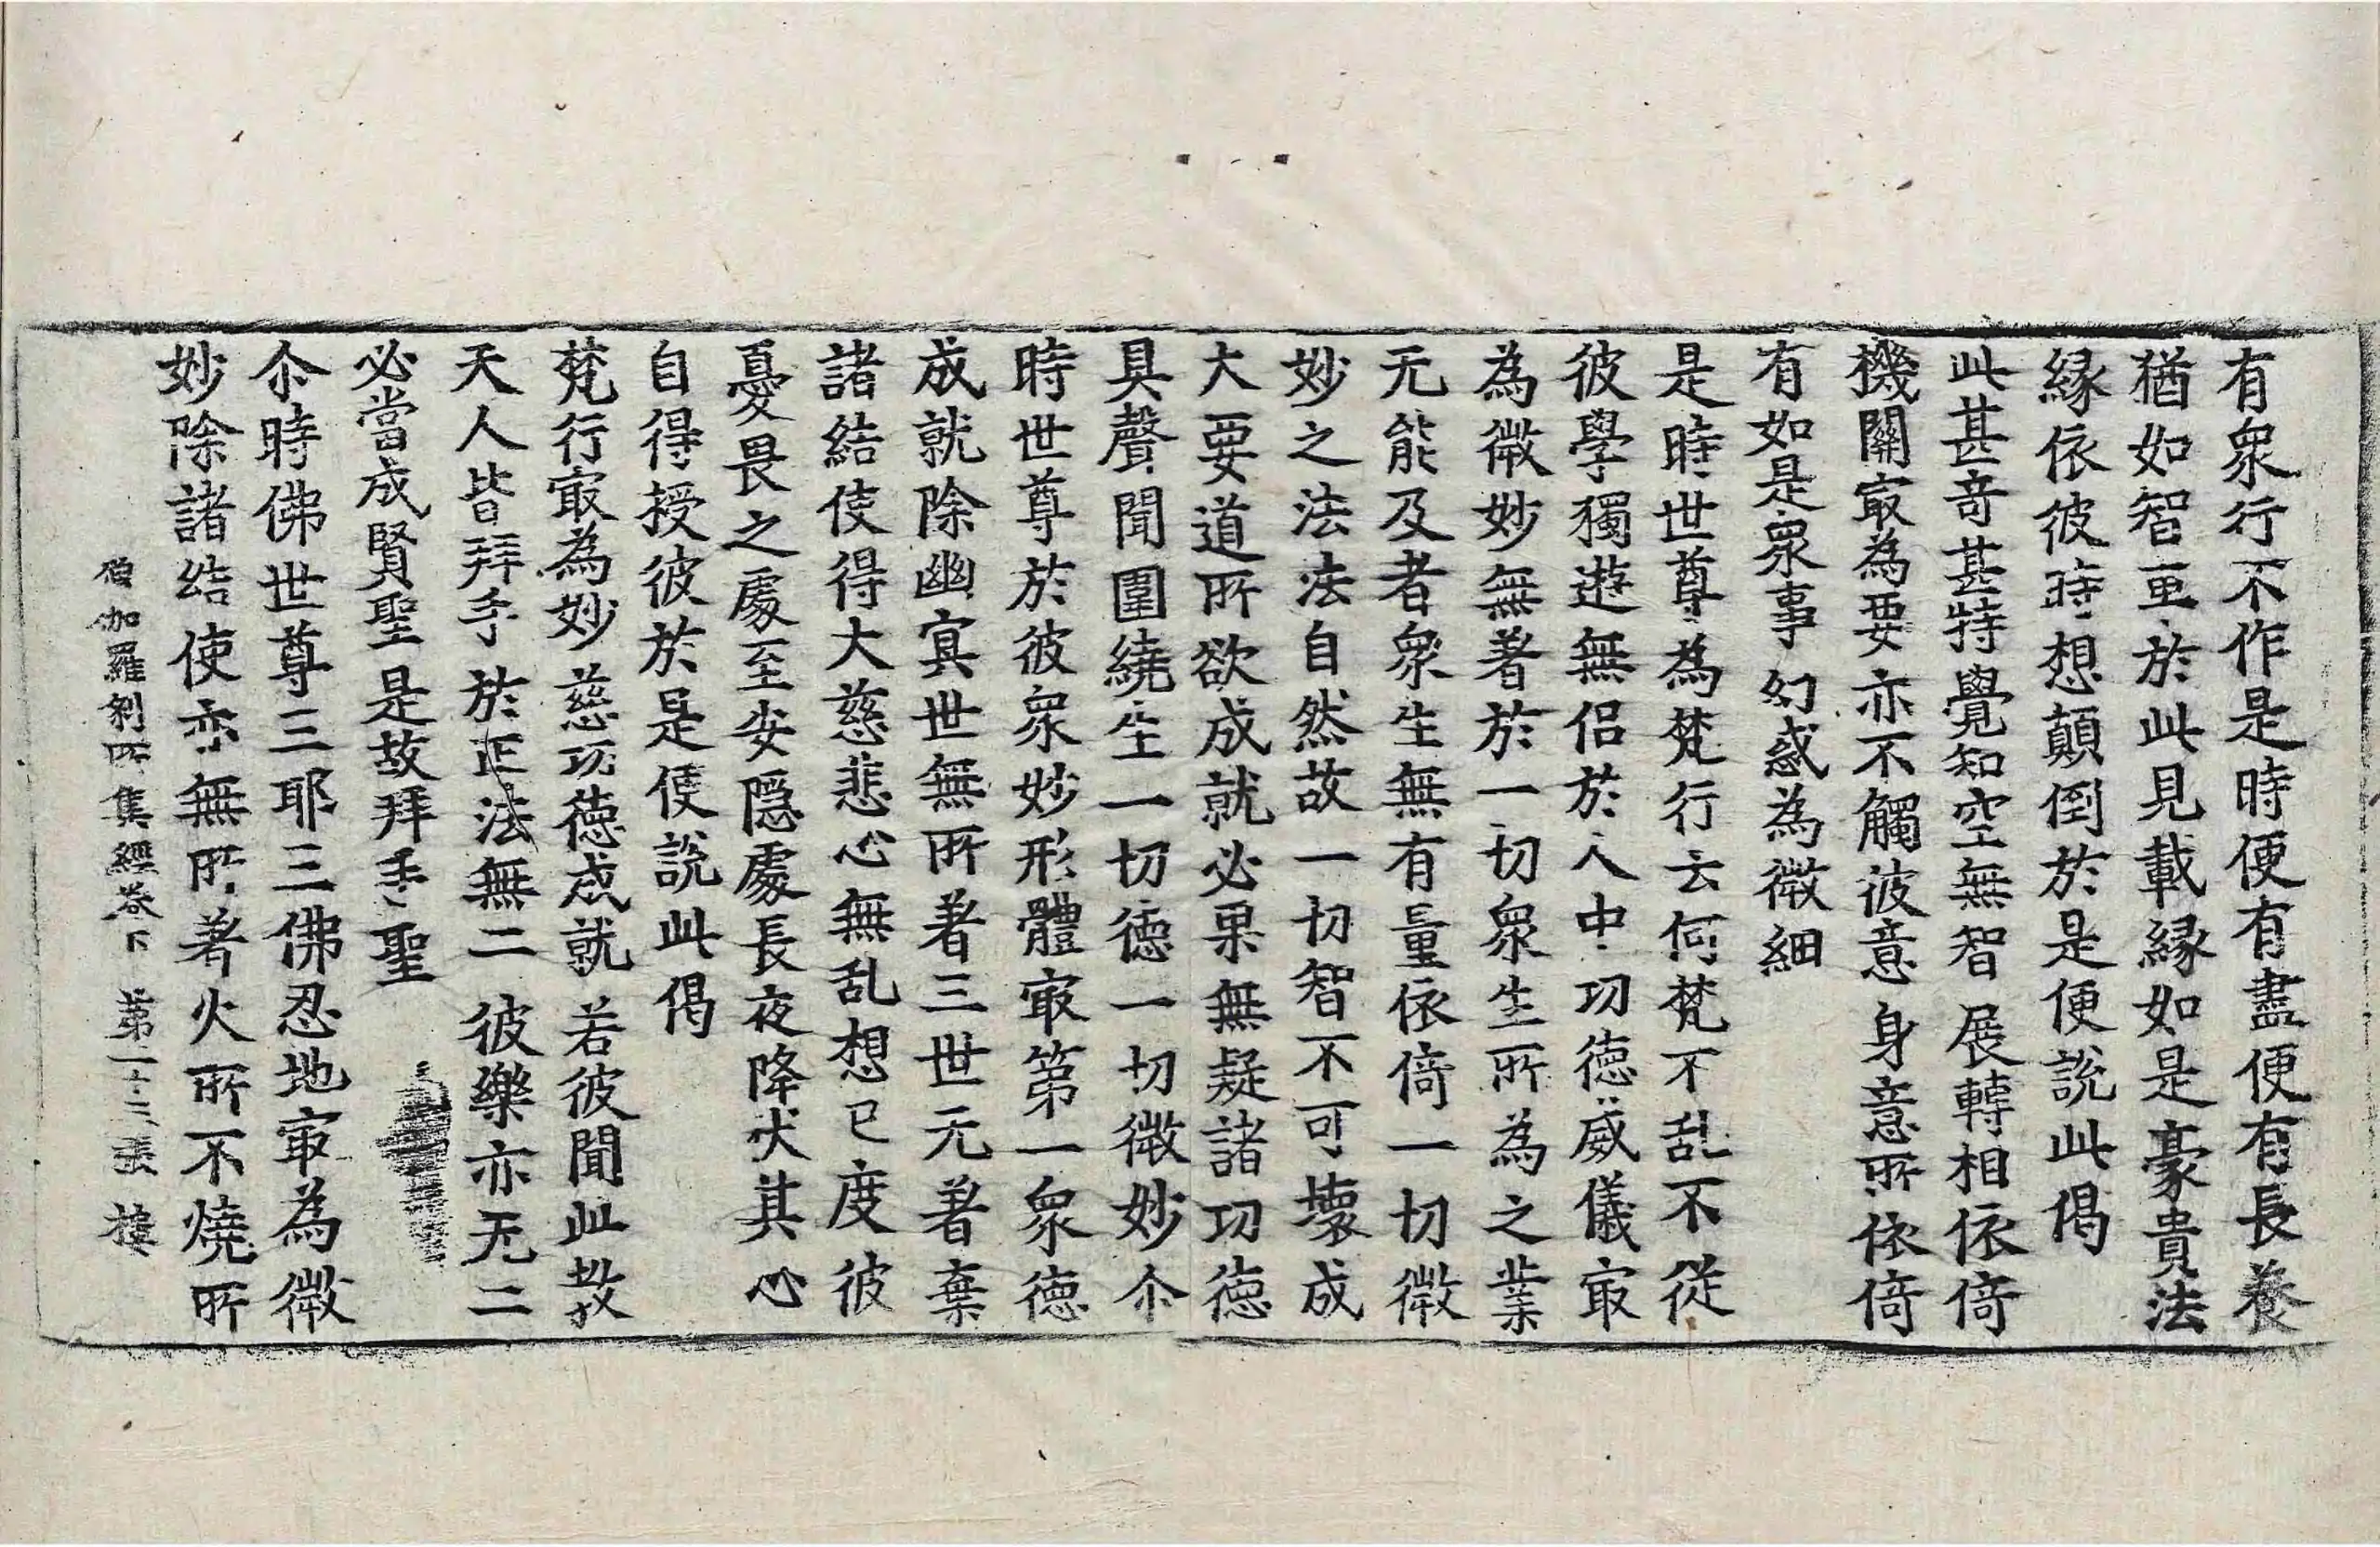 有衆行不作是時便有盡便有長養
猶如智更於此見載縁如是豪貴法
縁依彼時想顛倒於是便說此偈
此甚奇甚特 覺知空無智 展轉相依倚
機關㝡為要 亦不觸彼意 身意所依倚
有如是衆事 幻惑為微細
是時世尊為梵行云何梵不乱不從
彼學獨遊無侣於人中功德威儀㝡
為微妙無著於一切衆生所為之業
无能及者衆生無有量依倚一切微
妙之法法自然故一切智不可壞成
大要道所欲成就必果無疑諸功德
具聲聞圍繞生一切德一切微妙尒
時世尊於彼衆妙形體㝡第一衆德
成就除幽冥世無所著三世无著棄
諸結使得大慈悲心無乱想已度彼
憂畏之處至安隱處長夜降伏其心
自得授彼於是便說此偈
梵行㝡為妙 慈功德成就 若彼聞此教
天人皆拜手 於正法無二 彼樂亦无二
必當成賢聖 是故拜手聖
尒時佛世尊三耶三佛忍地㝡為微
妙除諸結使亦無所著火所不燒所
僧伽羅刹所集經卷下 第二十三張 樓